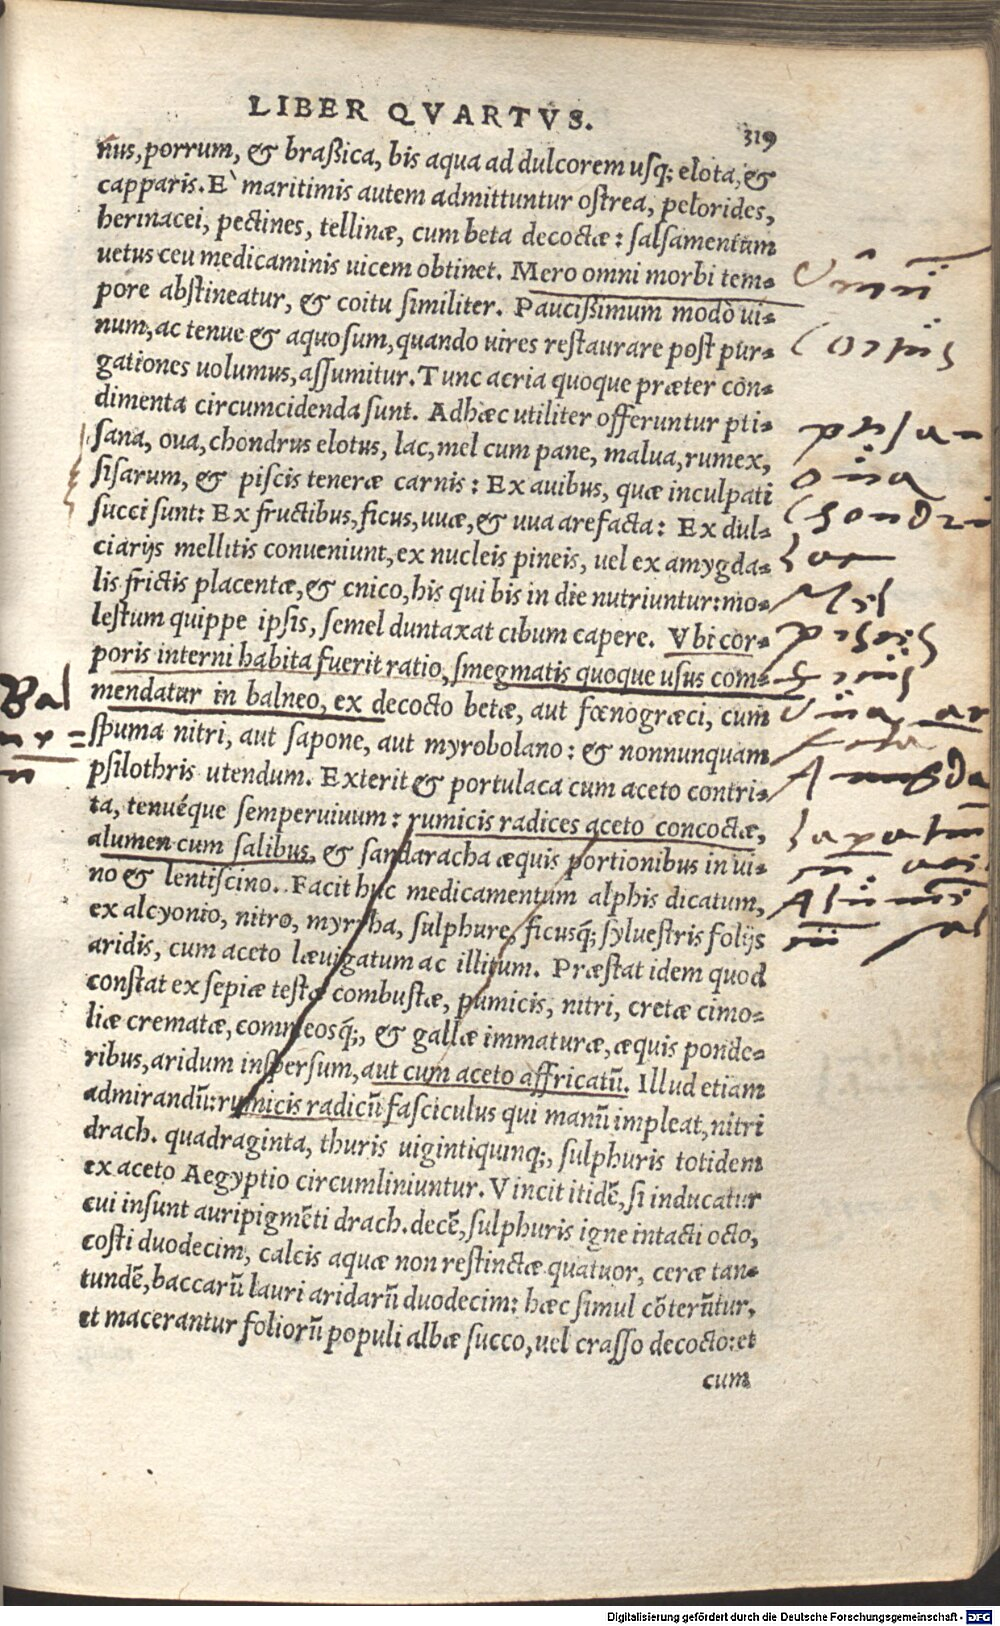 LIBER QVARTVS.
319
nus, porrum, & braßica, bis aqua ad dulcorem usq; elota, &
capparis. E` maritimis autem admittuntur ostrea, pelorides,
herinacei, pectines, tellinæ, cum beta decoctæ: salsamentum
uetus ceu medicaminis uicem obtinet. Mero omni morbi tem-
pore abstineatur, & coitu similiter. Paucißimum modò ui-
num, ac tenue & aquosum, quando uires restaurare post pur-
gationes uolumus, assumitur. Tunc acria quoque præter con-
dimenta circumcidenda sunt. Adhæc utiliter offeruntur pti-
sana, oua, chondrus elotus, lac, mel cum pane, malua, rumex,
sisarum, & piscis teneræ carnis: Ex auibus, quæ inculpati
succi sunt: Ex fructibus, ficus, uuæ, & uua arefacta: Ex dul-
ciarijs mellitis conueniunt, ex nucleis pineis, uel ex amygda-
lis frictis placentæ, & cnico, his qui bis in die nutriuntur: mo-
lestum quippe ipsis, semel duntaxat cibum capere. Vbi cor-
poris interni habita fuerit ratio, smegmatis quoque usus com-
mendatur in balneo, ex decocto betæ, aut fœnogræci, cum
spuma nitri, aut sapone, aut myrobolano: & nonnunquam
psilothris utendum. Exterit & portulaca cum aceto contri-
ta, tenuéque semperuiuum: rumicis radices aceto concoctæ,
alumen cum salibus, & sandaracha æquis portionibus in ui-
no & lentiscino. Facit huc medicamentum alphis dicatum,
ex alcyonio, nitro, myrrha, sulphure, ficusq; syluestris folijs
aridis, cum aceto læuigatum ac illitum. Præstat idem quod
constat ex sepiæ testa combustæ, pumicis, nitri, cretæ cimo-
liæ crematæ, commeosq;, & gallæ immaturæ, æquis ponde-
ribus, aridum inspersum, aut cum aceto affricatū. Illud etiam
admirandū: rumicis radicū fasciculus qui manū impleat, nitri
drach. quadraginta, thuris uigintiquinq;, sulphuris totidem
ex aceto Aegyptio circumliniuntur. Vincit itidē, si inducatur
cui insunt auripigmēti drach. decē, sulphuris igne intacti octo,
costi duodecim, calcis aquæ non restinctæ quatuor, ceræ tan-
tundē, baccarū lauri aridarū duodecim: hæc simul cōterūtur,
et macerantur foliorū populi albæ succo, uel crasso decocto: et
cum
Bal
Vinū
Coitus
ptisan
oua
Chondri
Lac
Mel
piscis
ficus
Vua ar
Amygda
Lapatiū
Alumē
sal
Digitalisierung gefördert durch die Deutsche Forschungsgemeinschaft - DFG